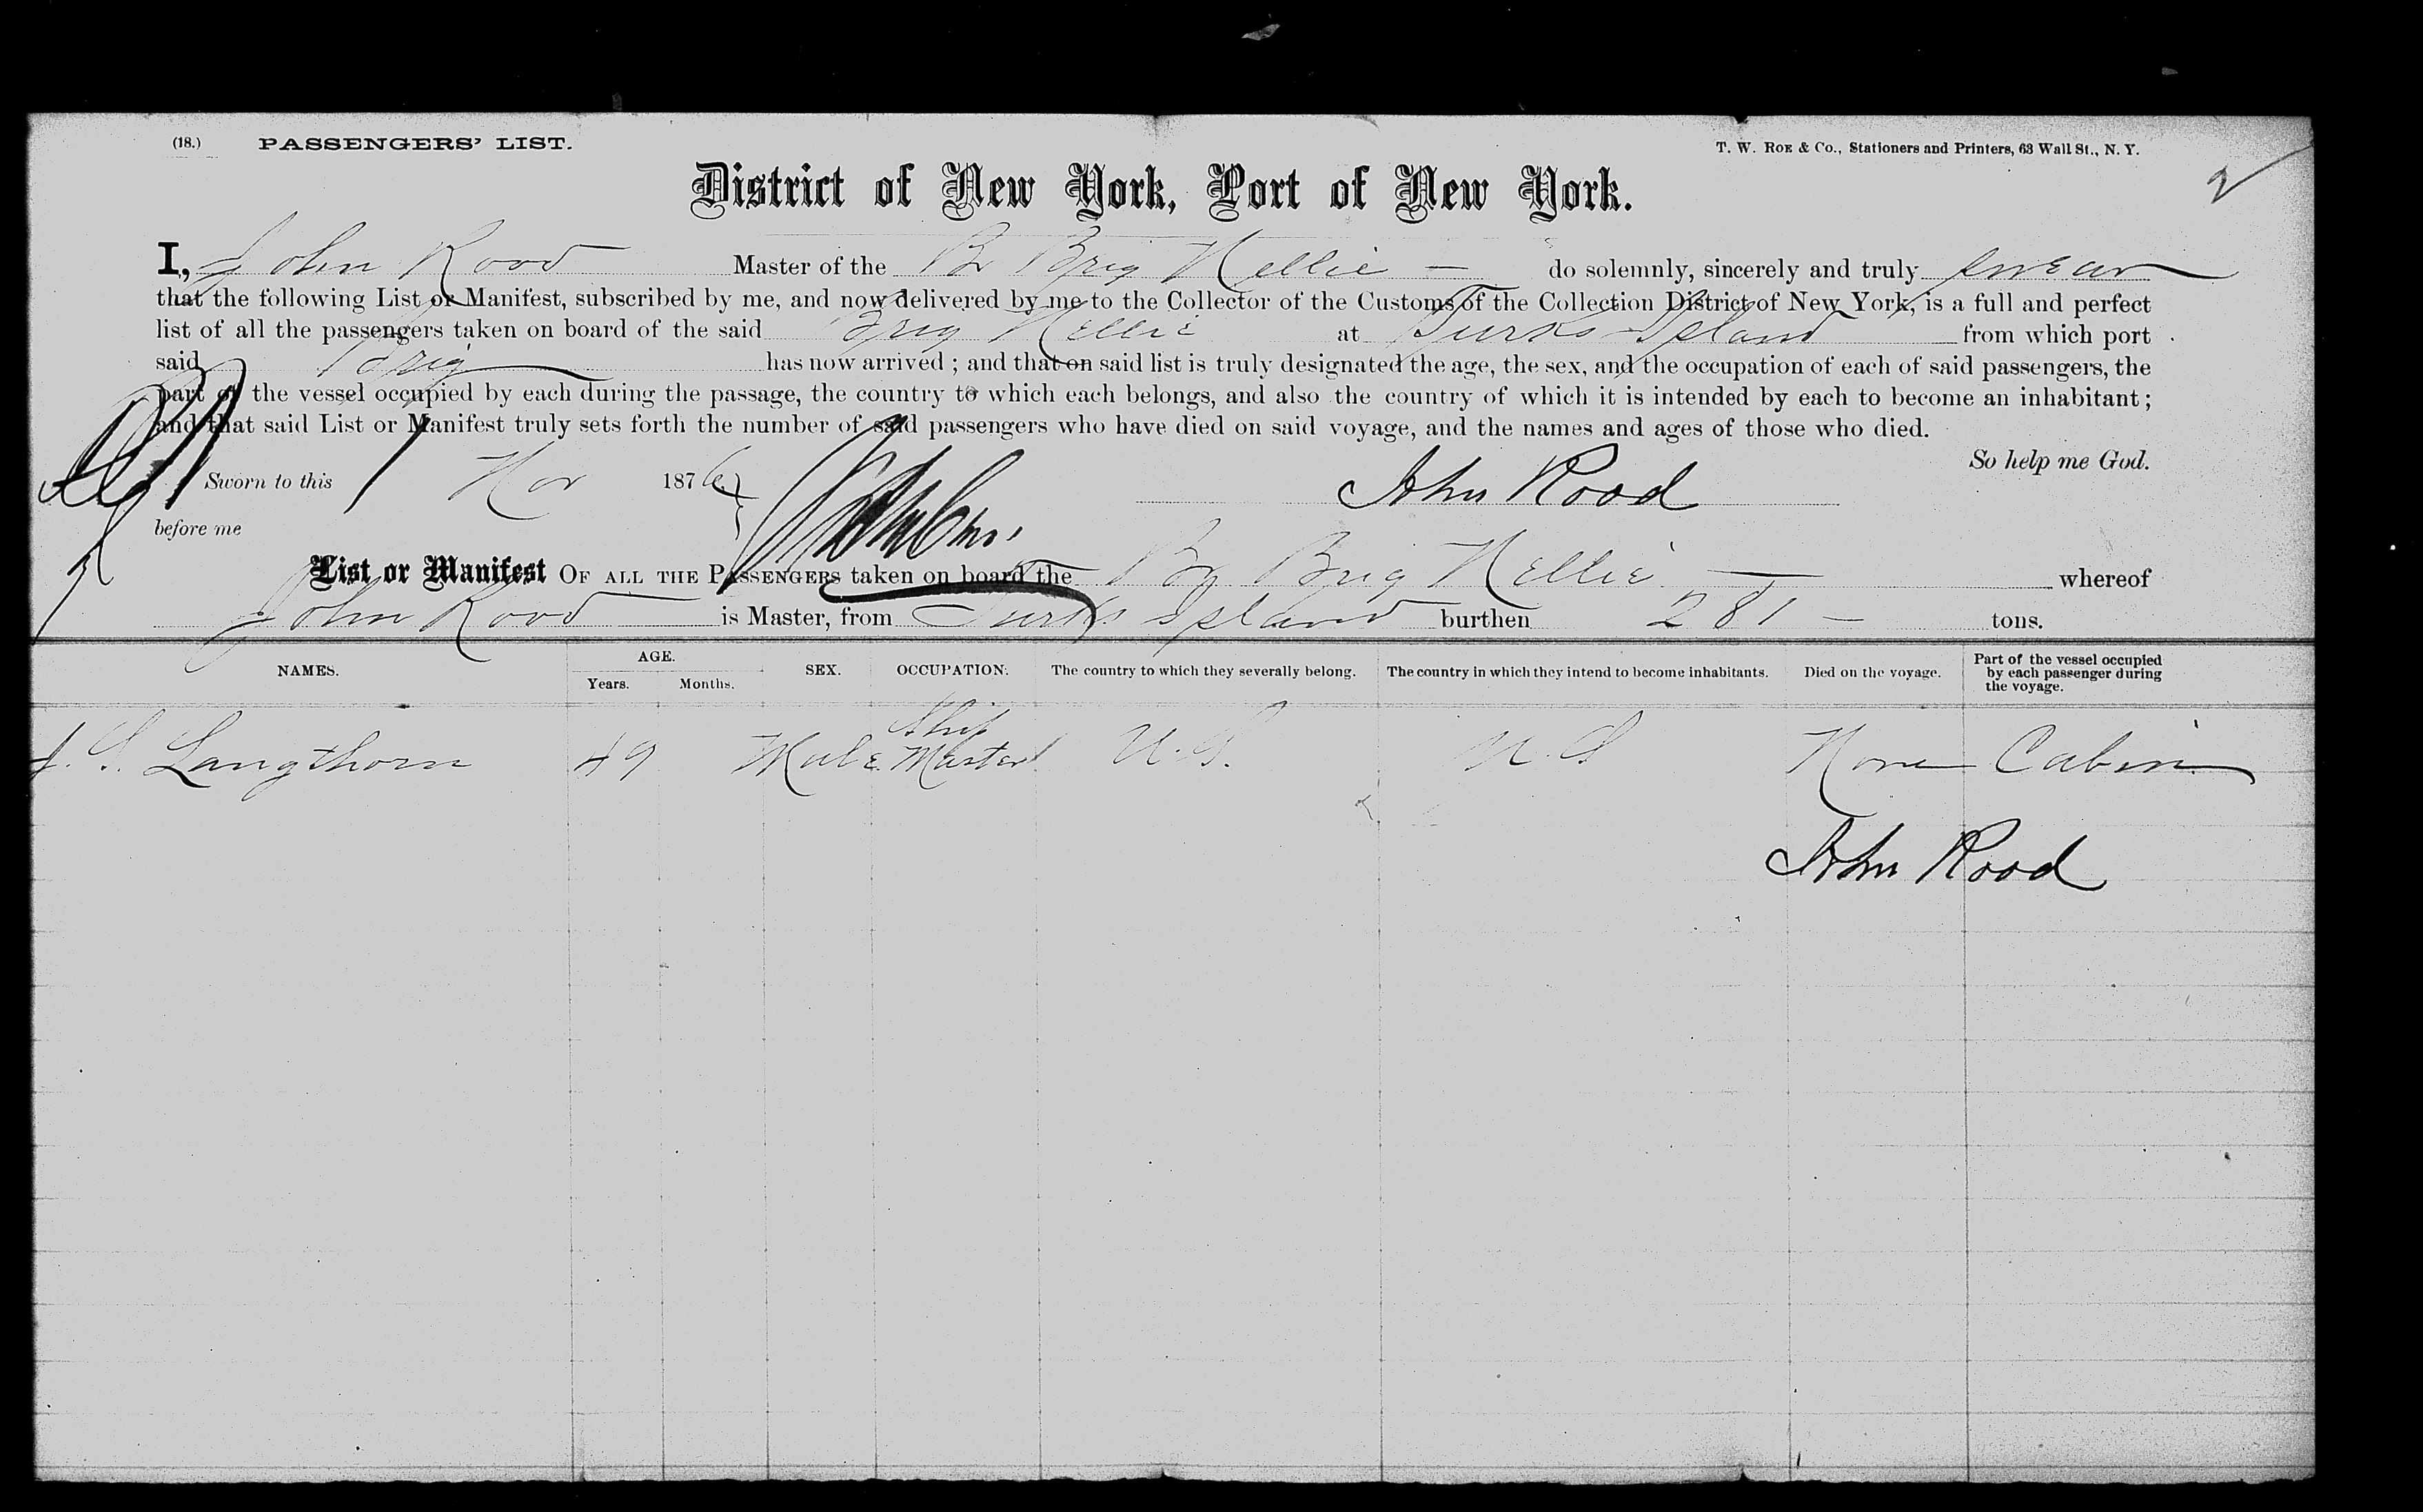 (18.) PASSENGERS' LIST. T. W. ROE & Co., Stationers and Printers, 63 Wall St., N. Y.
2
District of New York, Port of New York.
I, John Rood Master of the Br Brig Nellie — do solemnly, sincerely and truly swear
that the following List or Manifest, subscribed by me, and now delivered by me to the Collector of the Customs of the Collection District of New York, is a full and perfect
list of all the passengers taken on board of the said Brig Nellie at Turks Island from which port
said Brig has now arrived ; and that on said list is truly designated the age, the sex, and the occupation of each of said passengers, the
part of the vessel occupied by each during the passage, the country to which each belongs, and also the country of which it is intended by each to become an inhabitant ;
and that said List or Manifest truly sets forth the number of said passengers who have died on said voyage, and the names and ages of those who died.
So help me God.
Sworn to this 1 Nov 1876 John Rood
before me
List or Manifest OF ALL THE PASSENGERS taken on board the Br Brig Nellie — whereof
John Rood is Master, from Turks Island burthen 281 — tons.
NAMES. AGE. Years. Months. SEX. OCCUPATION. The country to which they severally belong. The country in which they intend to become inhabitants. Died on the voyage. Part of the vessel occupied by each passenger during the voyage.
S. Langthorn 49 Male Ship Master U.S. U.S None Cabin
John Rood